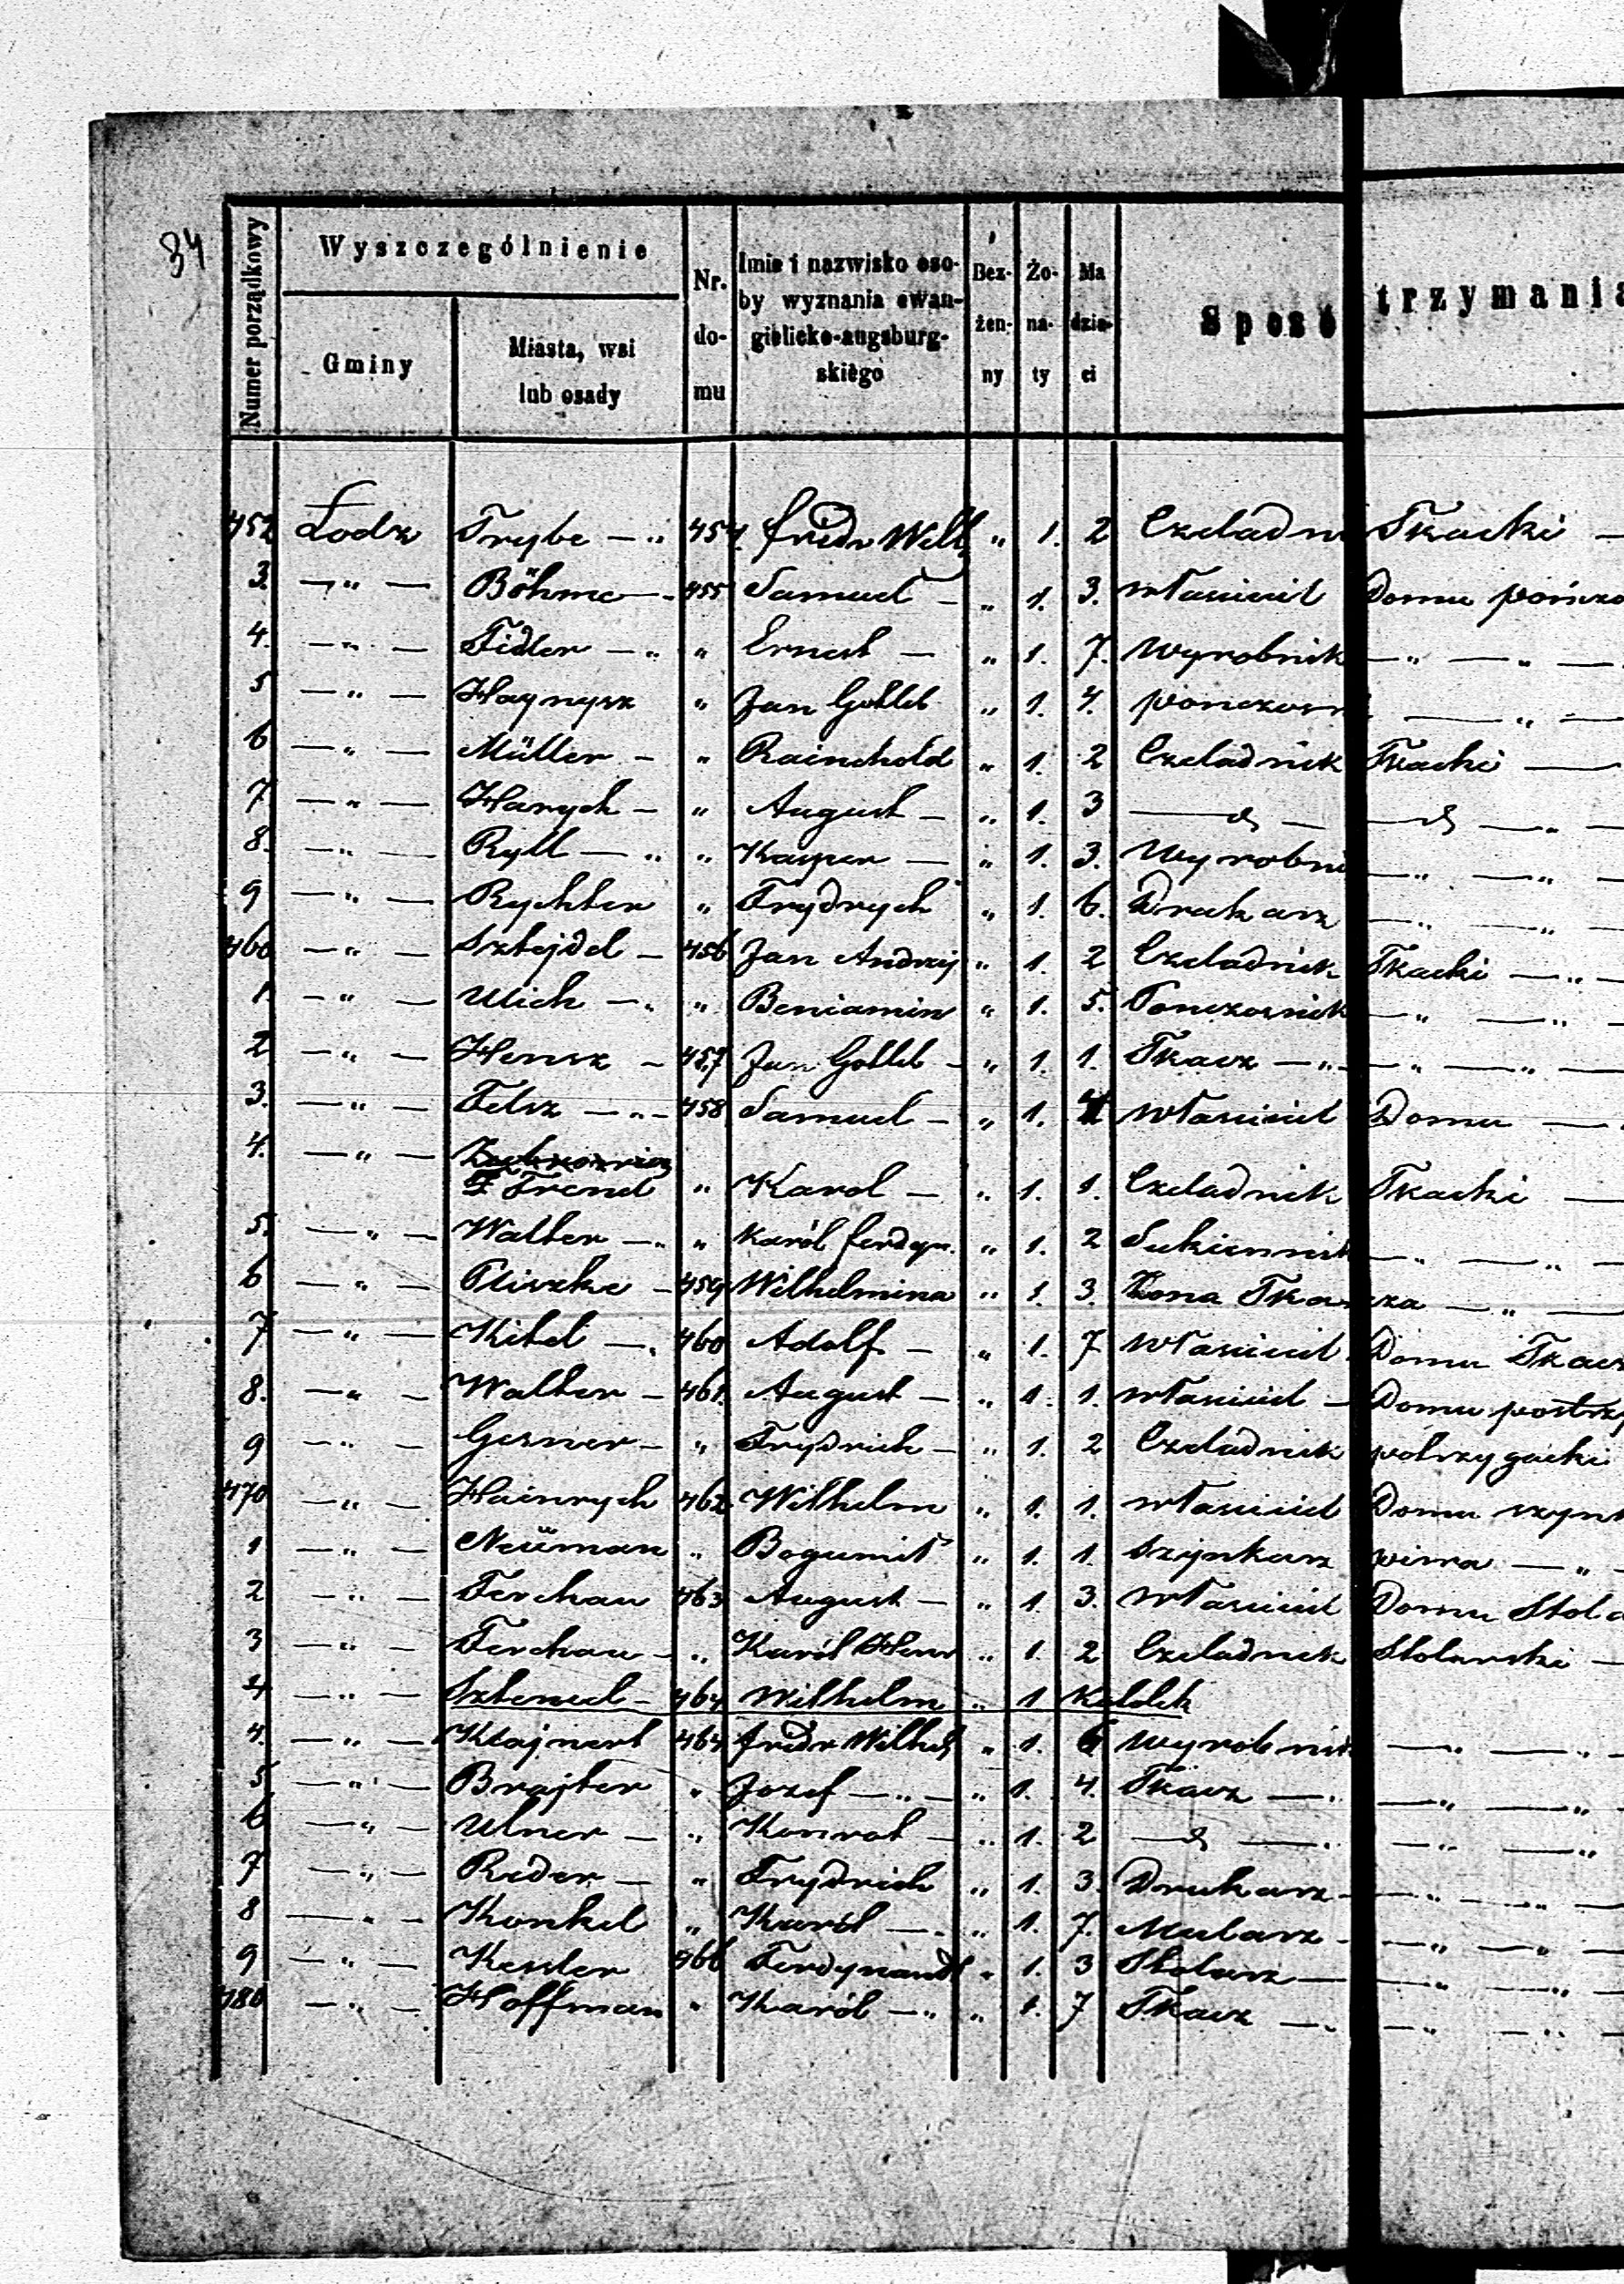 34
Numer porządkowy | Wyszczególnienie | Nr. domu | Imie i nazwisko osoby wyznania ewangielicko-augsburgskiégo | Bezżenny | Żonaty | Ma dzieci | Sposó trzymania
Gminy | Miasta, wsi lub osady
452 Łodz Trybe — „ 454. fridr Wilh „ 1. 2 Czeladni Tkacki —
3. — „ — Böhme — 455 Samuel — „ 1. 3. właściciel Domu pończo
4. — „ — Fidler — „ „ Ernest — „ 1. 7. Wyrobnik — „ — „ —
5 — „ — Haynysz „ Jan Gottlib „ 1. 4. pończosn — „ —
6 — „ — Müller — „ Rainchold „ 1. 2 Czeladnik Tkacki —
7 — „ — Harych — „ August — „ 1. 3 — d — — d — „ —
8. — „ — Ryll — „ „ Kasper — „ 1. 3. Wyrobni — „ — „ —
9 — „ — Rychter „ Frydrych „ 1. 6. Drukarz — „ — „ —
460 — „ — Sztejdel — 456 Jan Andrzij „ 1. 2 Czeladnik Tkacki — „ —
1. — „ — Ulich — „ „ Beniamin „ 1. 5. Ponczosnik — „ — „ —
2 — „ — Hensz — 457 Jan Gottlib — „ 1. 1. Tkacz — „ — „ — „ —
3. — „ — Felsz — „ — 458 Samuel — „ 1. 4 właściciel Domu —
4. — „ —
Frend „ Karol — „ 1. 1. Czeladnik Tkacki —
5. — „ — Walter — „ „ Karól ferdyn. „ 1. 2 Sukiennik — „ — „ —
6 — „ — Pliszke — 459 Wilhelmina „ 1. 3. Żona Tkacza — „ —
7 — „ — Kitel — „ 460 Adolf — „ 1. 7 właściciel Domu Tkacz
8. — „ — Walter — 461. August — „ 1. 1. właściciel — Domu postrzy
9 — „ — Gesner — „ Frydrich — „ 1. 2 Czeladnik potrzygacki
470 — „ — Hainrych 462 Wilhelm „ 1. 1. właściciel Domu szynk
1 — „ — Neüman „ Bogumił „ 1. 1. Szynkarz piwa — „ —
2 — „ — Ferchau 463 August — „ 1 3. właściciel Domu Stola
3 — „ — Ferchau — „ Karól Henr „ 1. 2 Czeladnik Stolarski —
4 — „ — 464 Wilhelm „ 1
4. — „ — Klajnert 464 fridr Wilhel „ 1. 6 wyrobnik — „ — „ —
5 — „ — Brajter „ Jozef — „ — „ 1. 4. Tkacz — „ — „ — „
6 — „ — Ulner — „ Konrat — „ 1. 2 — d — „ — „ — „
7 — „ — Reder — „ Frydrich „ 1. 3. Drukarz — „ — „ —
8 — „ — Konkel „ Karól — „ „ 1. 7. Mularz — „ — „ —
9 — „ — Kessler 466 Ferdynandt „ 1. 3 Stolarz — „ — „ —
480 — „ — Hoffman „ Karól — „ „ 1. 7 Tkacz — „ — „ — „ —